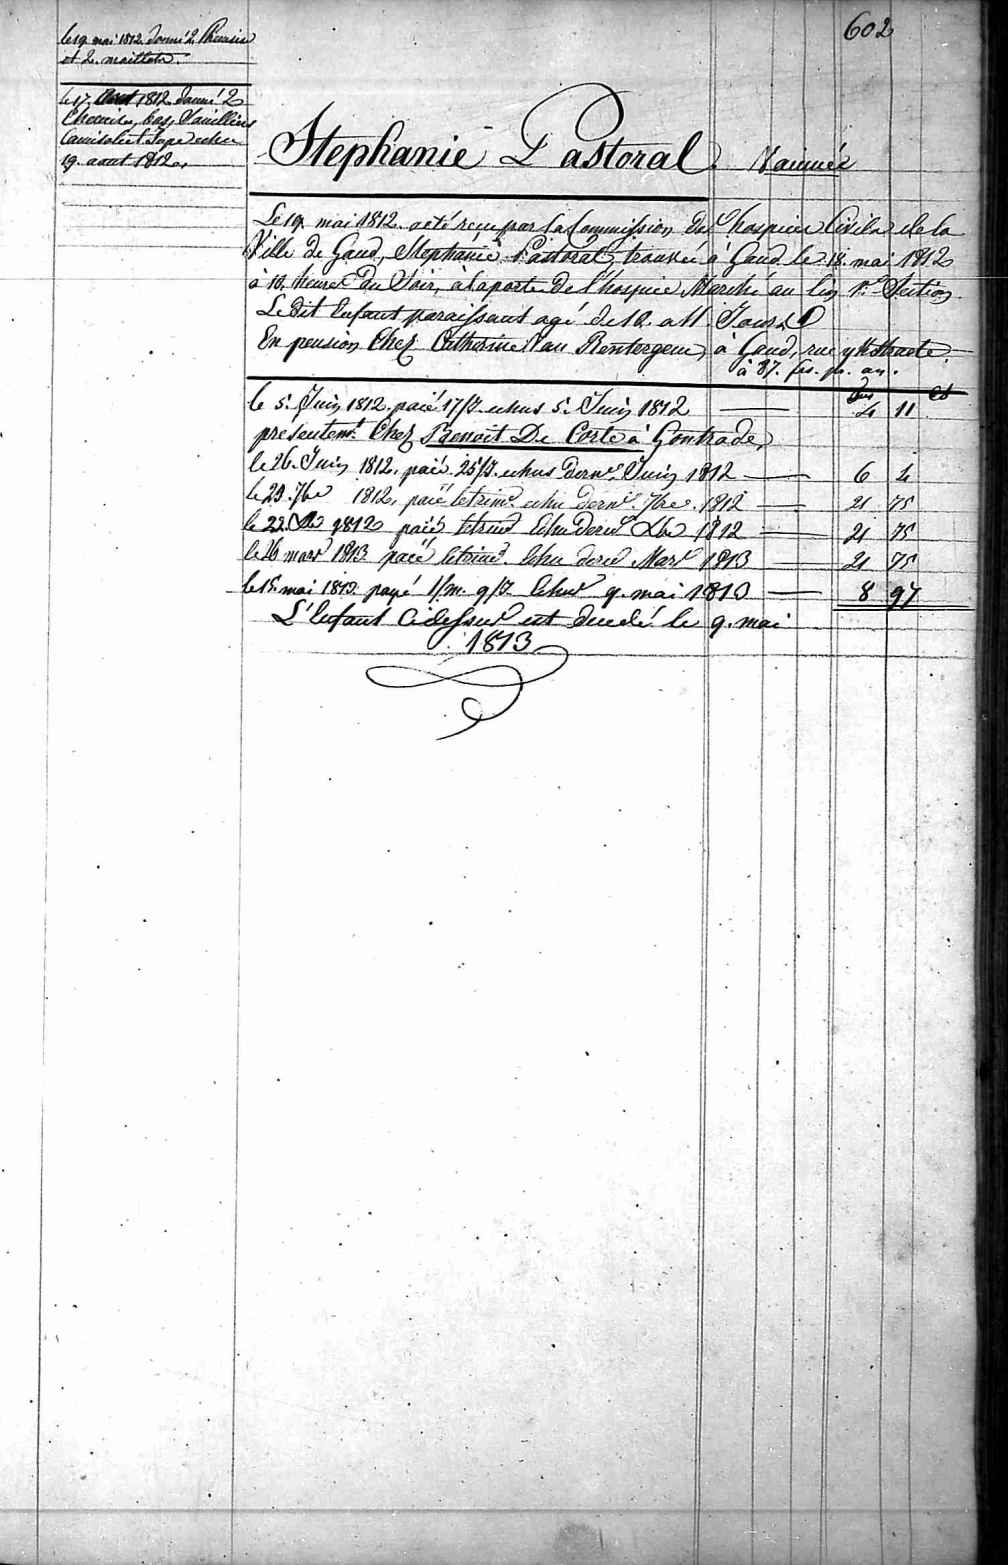 602
le 19 mai 1812 donné 2 Chemises
et 2 maillots
le 17 aout 1812 donné 2
Chemises, bas,
Camisole et Jupe echu
19 aout 1812.
Stephanie Pastoral. Vaccinée
Le 19 mai 1812 a eté reçu par la Commission des Hospices Civils de la
Ville de Gand, Stephanie Pastoral, trouvée à Gand le 18 mai 1812
à 10 heures du Soir, à la porte de l'hospice Marché au lin 1re Section.
Le dit Enfant paraissant agé de 10 a 11 Jours
En pension Chez Catherine Van Rentergem, à Gand, rue
à 87. frs. pr. an.
frs Cs
le 5 Juin 1812 paié 17/J. echus 5 Juin 1812 — 4 11
presentemt. Chez Benoit De Corte à Gontrode,
le 26 Juin 1812, paié 25/J. echus dernr. Juin 1812 — 6 4
le 29 7bre 1812, paié le trimr. echu dernr. 7bre 1812 — 21 75
le 22 Xbre 1812 paié le trimr. Echu dernr. Xbre 1812 — 21 75
le 26 mars 1813 paié le trimr. Echu dernr. Mars 1813 — 21 75
le 15 mai 1813 payé 1/m. 9/J. Echus 9 mai 1813 — 8 97
L'Enfant Cidessus est decedé le 9. mai
1813